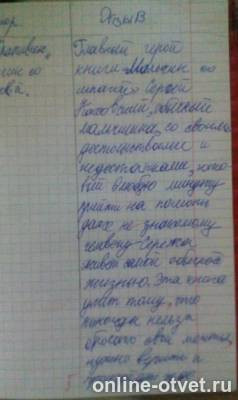 Отзыв
Главный герой
книги Мальчик со
шпагой Сергей
Каховский, обычный
мальчишка, со своими
достоинствами и
недостатками, гото-
вый в любую минуту
прийти на помощь
даже не знакомому
человеку. Сережа
живет самой обычной
жизнью. Эта книга
учит тому, что
никогда нельзя
бросать свои мечты,
нужно верить и
online-otvet.ru